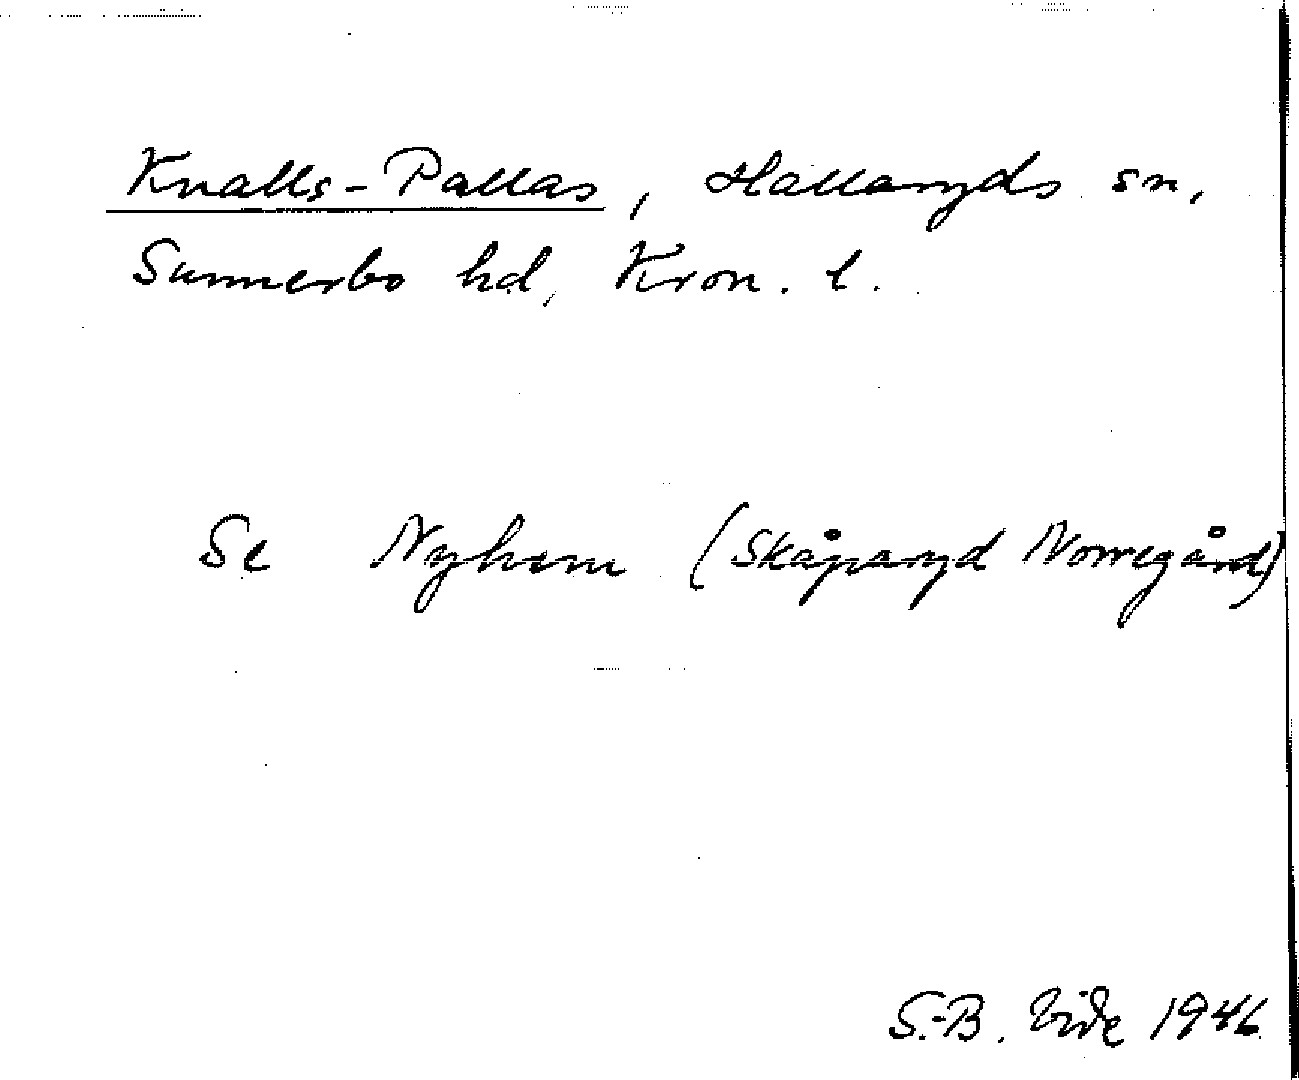 Knalls-Pallas, Hallaryds sn,
Sunnerbo hd, Kron. l.
Se Nyhem (Skåparyd Norregård)
S.-B. Vide 1946